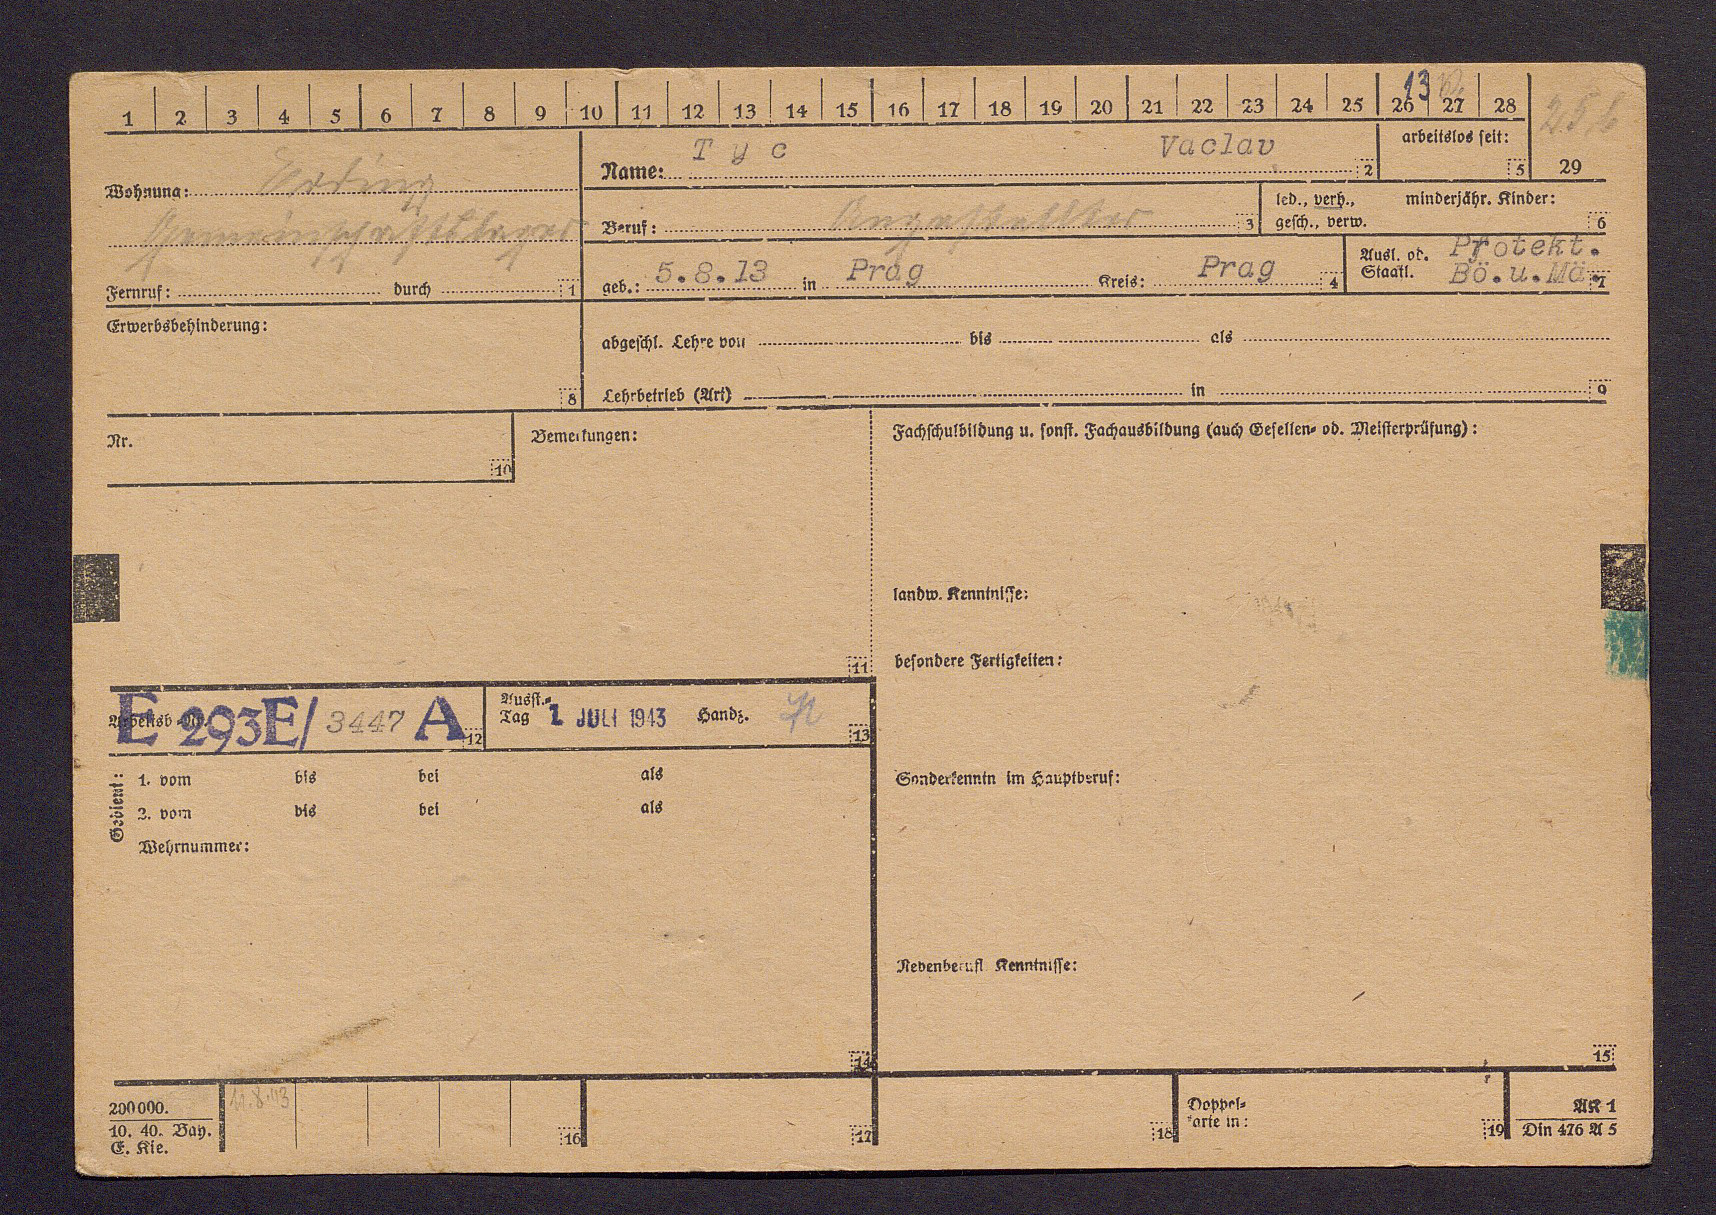 1 2 3 4 5 6 7 8 9 10 11 12 13 14 15 16 17 18 19 20 21 22 23 24 25 26 27 28
13
Wohnung: Erding
Gemeinschaftslager
Fernruf: durch 1
Name: Tyc Vaclav 2
arbeitslos seit: 5
29
Beruf: Angestellter 3
led., verh., gesch., verw.
minderjähr. Kinder: 6
geb.: 5.8.13 in Prag Kreis: Prag 4
Ausl. od. Staatl. Protekt. Bö.u.Mä. 7
Erwerbsbehinderung: 8
abgeschl. Lehre von bis als
Lehrbetrieb (Art) in 9
Nr. 10
Bemerkungen: 11
Fachschulbildung u. sonst. Fachausbildung (auch Gesellen- od. Meisterprüfung):
landw. Kenntnisse:
besondere Fertigkeiten:
Arbeitsb.-Nr. E 293E/ 3447 A 12
Ausst.-Tag 1 JULI 1943 Handz. 13
Gedient:
1. vom bis bei als
2. vom bis bei als
Wehrnummer:
14
Sonderkenntn im Hauptberuf:
Nebenberufl Kenntnisse:
15
200000.
10. 40. Bay.
E. Kie.
11.8.43
16 17 18
Doppel-
karte in: 19
AK 1
Din 476 A 5